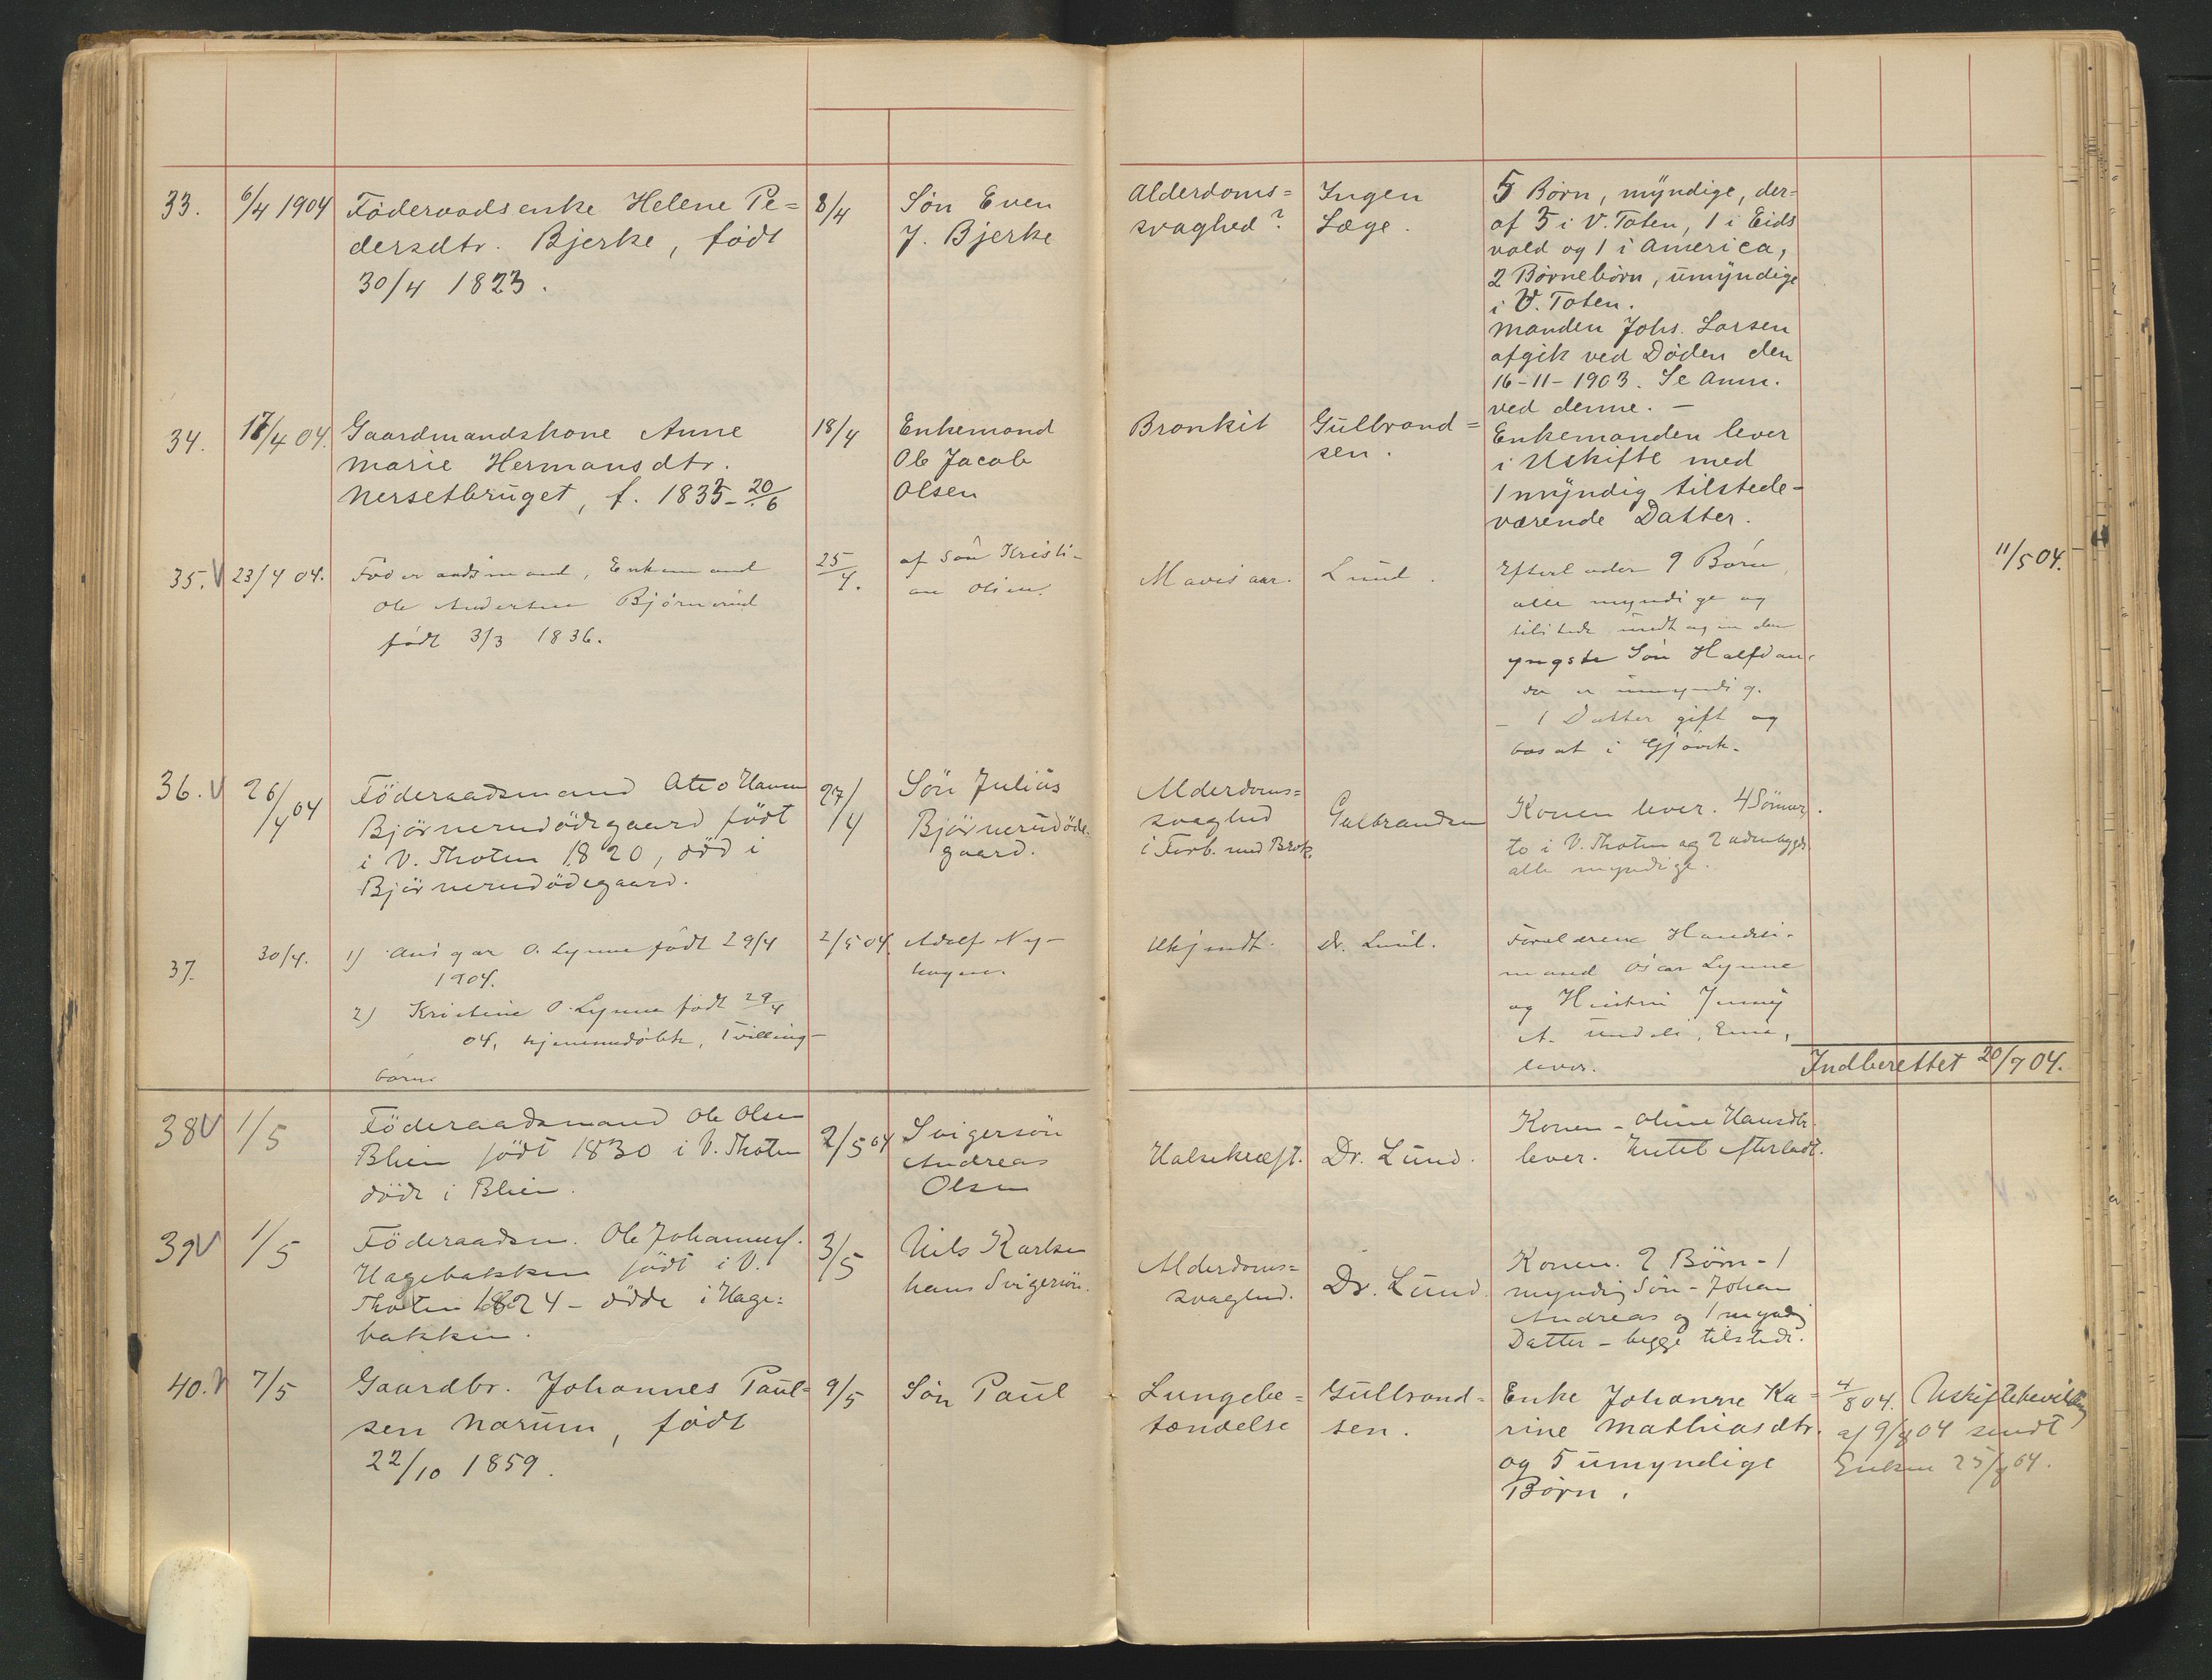 33.
6/4 1904
Föderaadsenke Helene Pe=
dersdtr. Bjerke, født
30/4 1823.
8/4
Søn Even
J. Bjerke
Alderdoms=
svaghed?
Ingen
Læge.
5 Børn, myndige, der=
af 3 i V. Toten, 1 i Eids
vold og 1 i America,
2 Børnebørn, umyndige
i V. Toten.
Manden Johs. Larsen
afgik ved Døden den
16-11-1903. Se Anm.
ved denne. -
34.
17/4 04.
Gaardmandskone Anne
Marie Hermansdtr.
Nersetbruget, f. 1835 - 20/6
18/4
Enkemand
Ole Jacob
Olsen
Bronkit
Gulbrand=
sen.
Enkemanden lever
i Uskifte med
1 myndig tilstede-
værende Datter.
35. V
23/4 04.
Föderaadsmand, Enkemand
Ole Andersen Bjørnerud
født 3/3 1836.
25/4.
af Søn Kristi-
an Olsen.
Lund.
Efterlader 9 Børn,
alle myndige og
tilstede undtagen den
yngste Søn Halfdan,
der er umyndig.
- 1 Datter gift og
bosat i Gjøvik.
11/5 04.
36. V
26/4 04
Föderaadsmand
Björnerudödegaard födt
i V. Thoten 1820, död i
Björnerudödegaard.
27/4
Sön Julius
Björnerudöde-
gaard.
Alderdoms=
svaghed
i Forb. med Brok.
Gulbrandsen
Konen lever. 4 Sönner,
to i V. Thoten og 2 udenbygds
alle myndige.
37.
30/4.
1) Ansgar O. Lynne født 29/4
1904.
2) Kristine O. Lynne født 29/4
04, hjemmedøbte, Tvilling-
børn.
2/5 04
Adolf Ny-
hagen.
Ukjendt.
Dr. Lund.
Forældrene Handels-
mand Oscar Lynne
og Hustru Jenny
lever.
Indberettet 20/7 04.
38 V
1/5
Föderaadsmand Ole Olsen
Blien födt 1830 i V. Thoten
döde i Blien.
2/5 04
Svigersön
Andreas
Olsen
Halsekræft.
Dr. Lund.
Konen - Oline Hansdtr.
lever. Intet efterladt.
39 V
1/5
Föderaadsm. Ole Johannes.
Hagebakken födt i V.
Thoten 1824 - döde i Hage=
bakken.
3/5
Nils Karlsen
hans Svigersön.
Alderdoms=
svaghed.
Dr. Lund.
Konen. 2 Börn - 1
myndig Sön - Johan
Andreas og 1 myndig
Datter - begge tilstede.
40. V
7/5
Gaardbr. Johannes Paul=
sen Narum, født
22/10 1859.
9/5
Søn Paul
Lungebe=
tændelse
Gulbrand=
sen.
Enke Johanne Ka=
rine Mathiasdtr.
og 5 umyndige
Børn.
4/8 04. Uskiftebevilling
af 9/8 04 sendt
Enken 25/8 04.